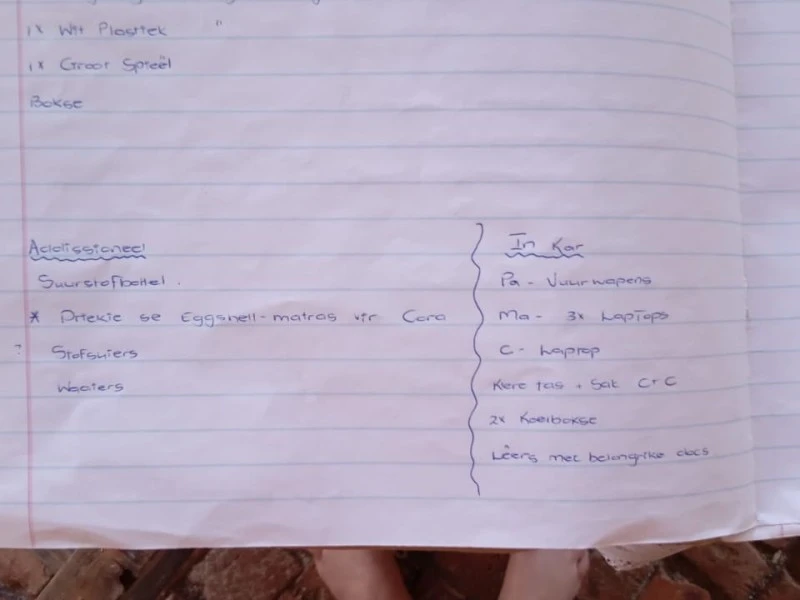 1x Wit Plasttek "
1x Groot Spieël
Bokse
Addissioneel
Suurstofbottel.
* Prtekie se Eggshell-matras vir Cara
? Stofsuiers
Waaiers
In Kar
Pa - Vuurwapens
Ma - 3x Laptops
C - Laptop
Klere tas + Sak C+C
2x Koelbokse
Lêers met belangrike docs